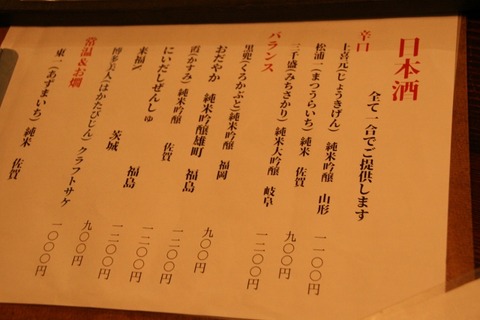 日本酒
全て一合でご提供します
辛口
上喜元(じょうきげん) 純米吟醸 山形 一一〇〇円
松浦一(まつうらいち) 純米 佐賀 九〇〇円
三千盛(みちさかり) 純米大吟醸 岐阜 一二〇〇円
バランス
黒兜(くろかぶと)純米吟醸 福岡
おだやか 純米吟醸雄町 福島 九〇〇円
霞(かすみ) 純米吟醸 佐賀 一二〇〇円
にいだしぜんしゅ 福島 一二〇〇円
来福 茨城 一二〇〇円
常温&お燗
博多美人(はかたびじん)クラフトサケ 九〇〇円
東一(あずまいち) 純米 佐賀 一〇〇〇円